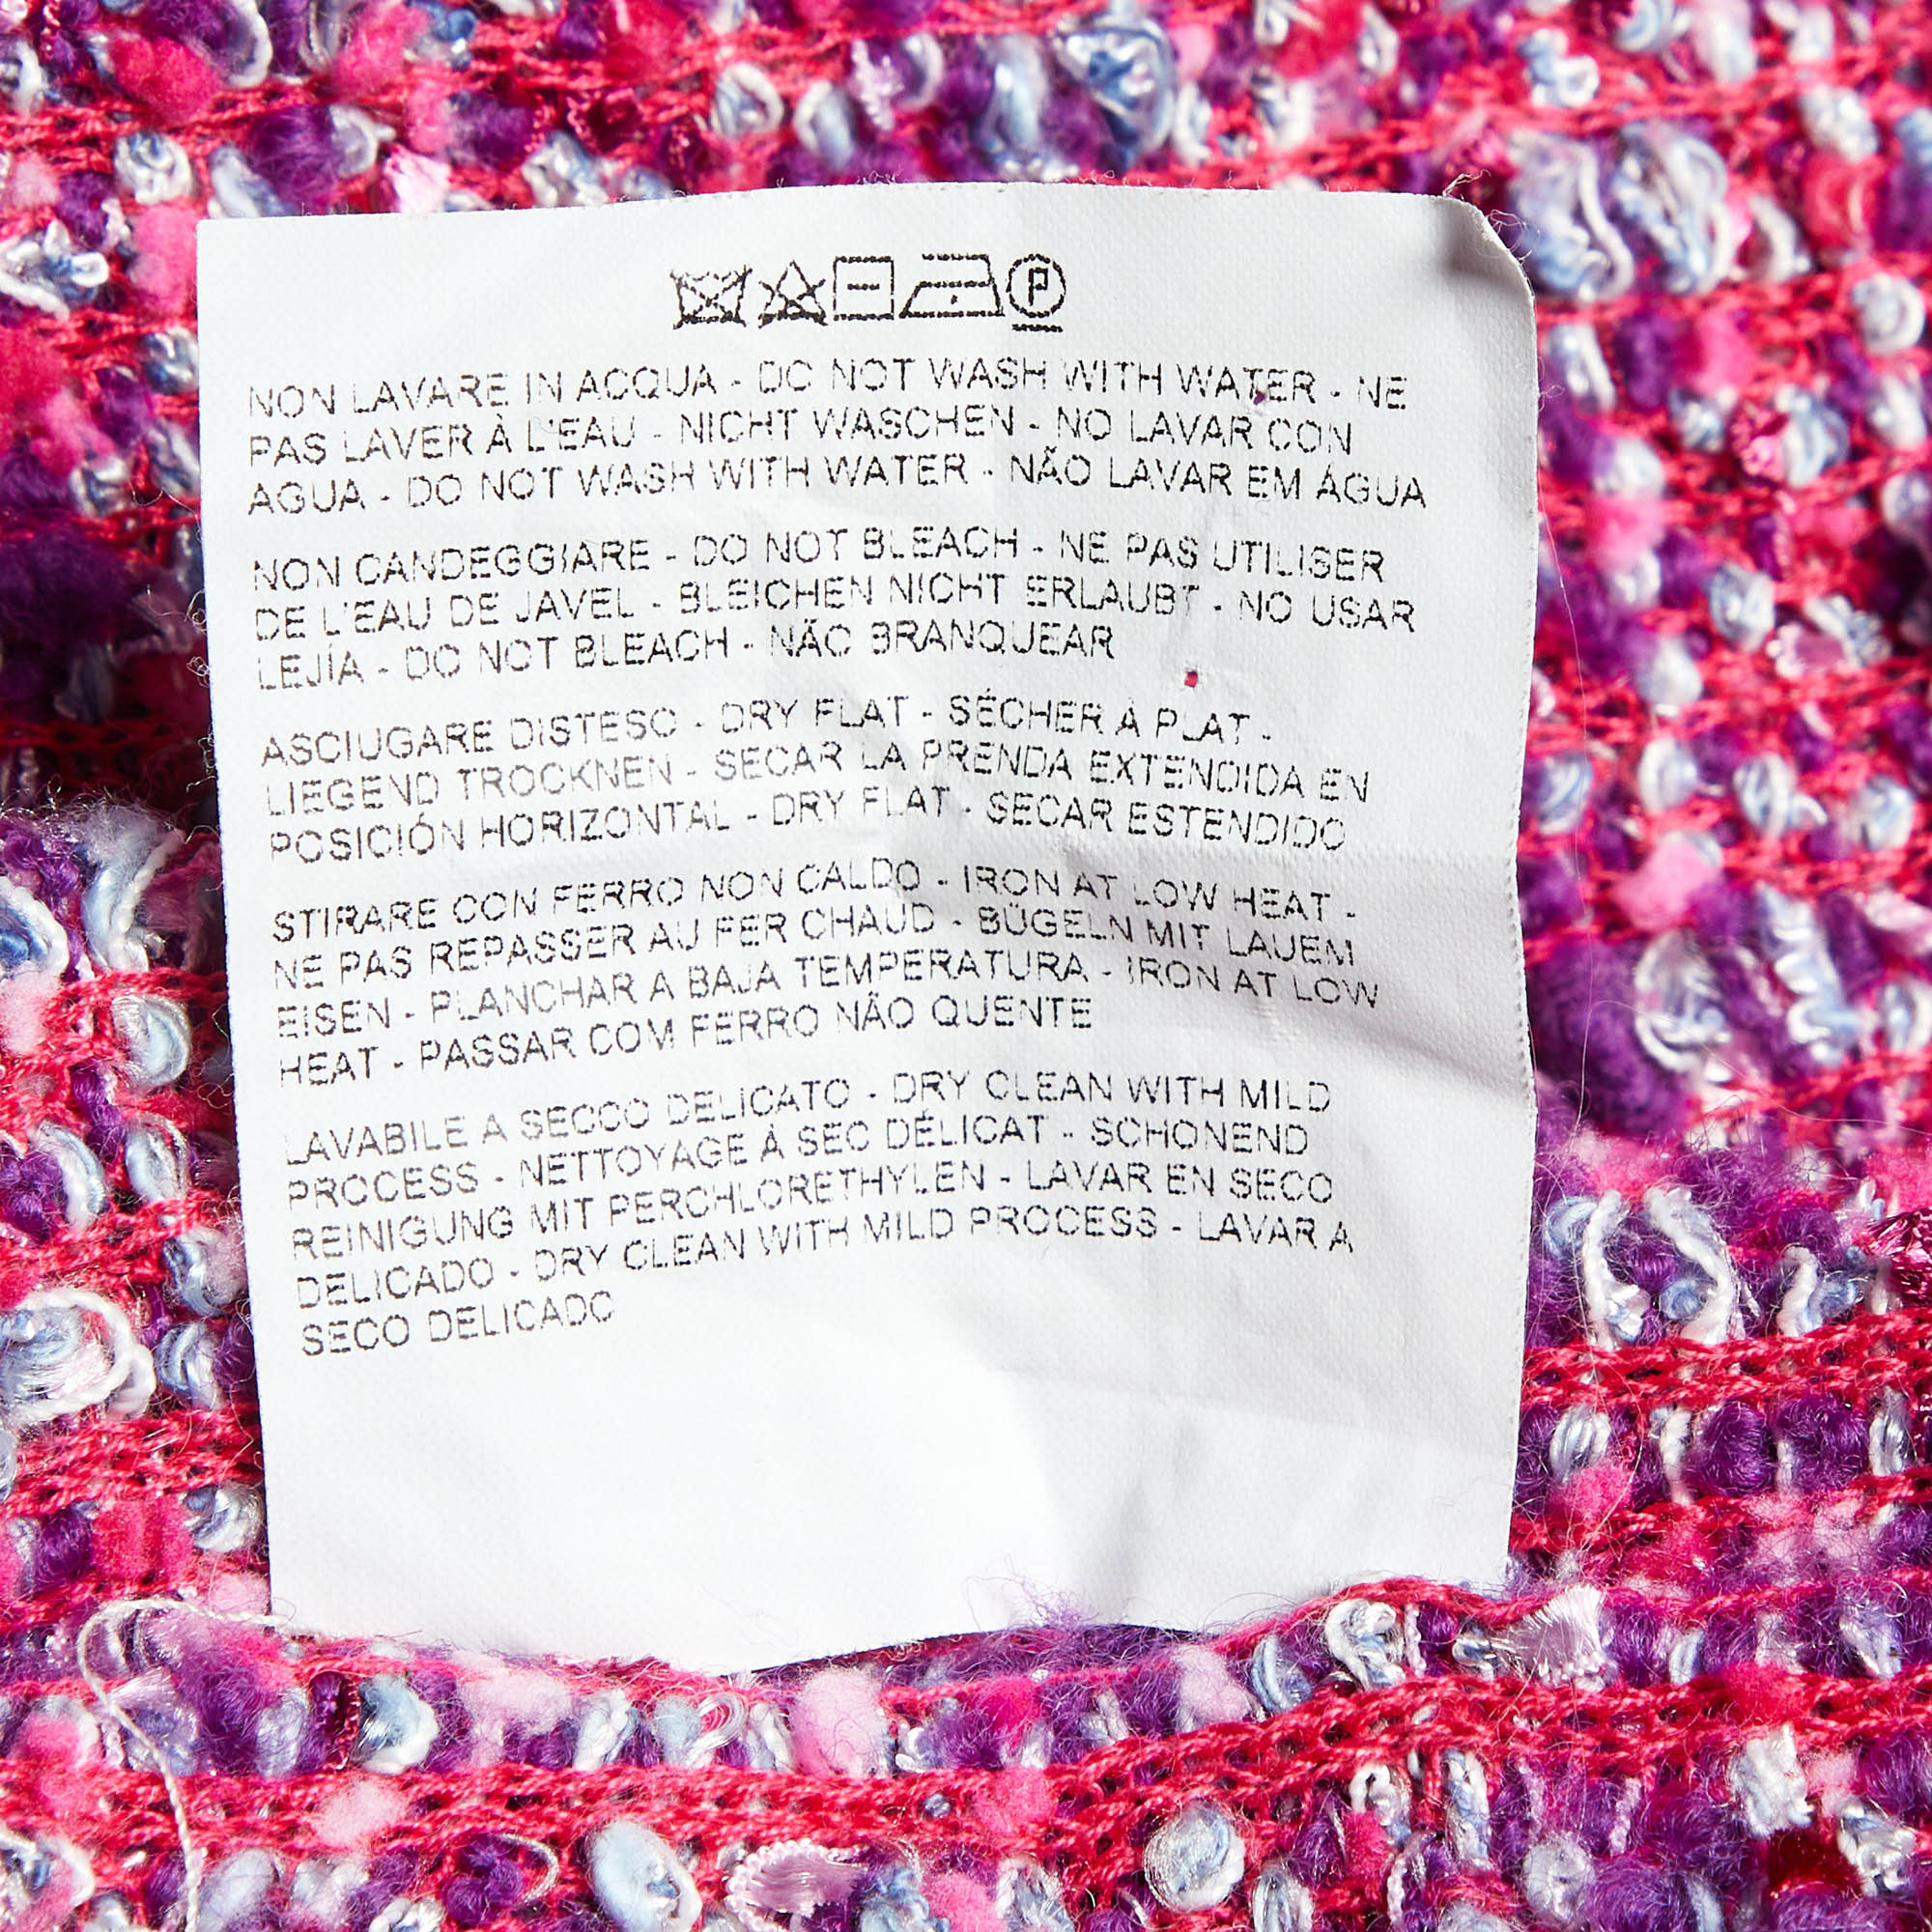 P
NON LAVARE IN ACQUA - DO NOT WASH WITH WATER - NE
PAS LAVER À L'EAU - NICHT WASCHEN - NO LAVAR CON
AGUA - DO NOT WASH WITH WATER - NÃO LAVAR EM ÁGUA
NON CANDEGGIARE - DO NOT BLEACH - NE PAS UTILISER
DE L'EAU DE JAVEL - BLEICHEN NICHT ERLAUBT - NO USAR
LEJÍA - DO NOT BLEACH - NÃO BRANQUEAR
ASCIUGARE DISTESO - DRY FLAT - SÉCHER À PLAT -
LIEGEND TROCKNEN - SECAR LA PRENDA EXTENDIDA EN
POSICIÓN HORIZONTAL - DRY FLAT - SECAR ESTENDIDO
STIRARE CON FERRO NON CALDO - IRON AT LOW HEAT -
NE PAS REPASSER AU FER CHAUD - BÜGELN MIT LAUEM
EISEN - PLANCHAR A BAJA TEMPERATURA - IRON AT LOW
HEAT - PASSAR COM FERRO NÃO QUENTE
LAVABILE A SECCO DELICATO - DRY CLEAN WITH MILD
PROCESS - NETTOYAGE À SEC DÉLICAT - SCHONEND
REINIGUNG MIT PERCHLORETHYLEN - LAVAR EN SECO
DELICADO - DRY CLEAN WITH MILD PROCESS - LAVAR A
SECO DELICADO